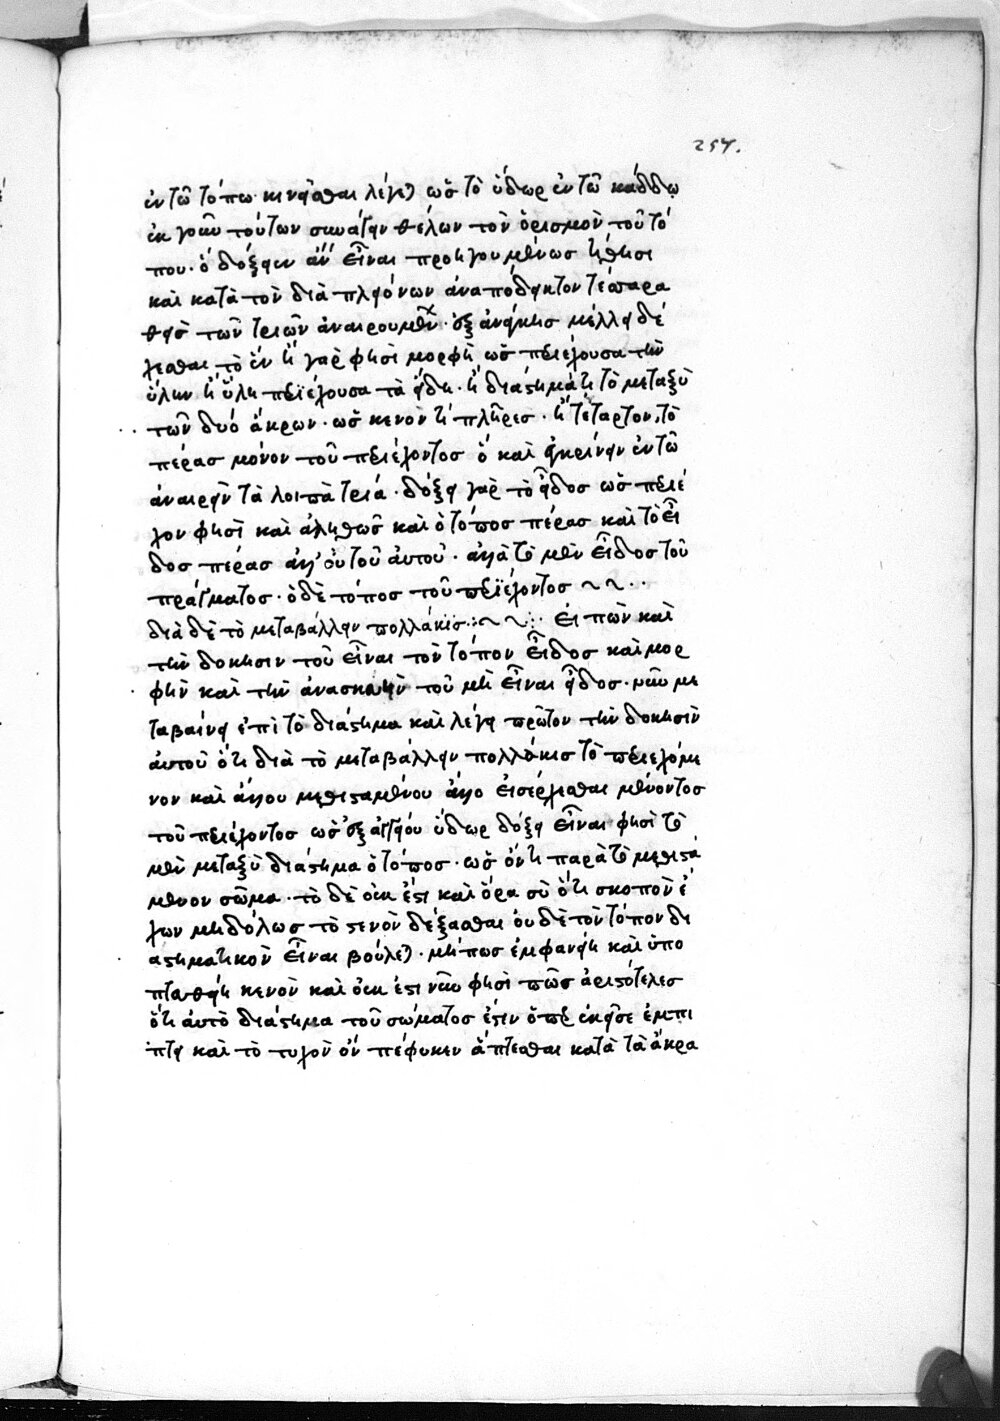 257.
ἐν τῶ τόπω κινεῖσθαι λέγεται ὡς τὸ ὕδωρ ἐν τῶ κάδδω
ἐκ γοῦν τούτων συνάγειν θέλων τὸν ὁρισμὸν τοῦ τό
που. ὁ δόξειεν ἂν εἶναι προηγουμένως τίθησι
καὶ κατὰ τὸν διὰ πλειόνων ἀναπόδεικτον τέταρα
θεὶς τῶν τριῶν ἀναιρουμένων. ἐξ ἀνάγκης μέλλει δέ
χεσθαι τὸ ἕν ἢ γὰρ φησὶ μορφὴ ὡς περιέχουσα τὴν
ὕλην ἢ ὕλη περιέχουσα τὰ εἴδη. ἢ διάστημά τι τὸ μεταξὺ
τῶν δυό ἄκρων. ὡς κενὸν ἢ πλῆρες. ἢ τέταρτον, τὸ
πέρας μόνον τοῦ περιέχοντος ὁ καὶ ἐγκρίνειν ἐν τῶ
ἀναιρεῖν τὰ λοιπὰ τρία. δόξει γὰρ τὸ εἶδος ὡς περιέ
χον φησὶ καὶ ἀληθῶς καὶ ὁ τόπος πέρας καὶ τὸ εἶ
δος πέρας ἀλλ' οὐ τοῦ αὐτοῦ. ἀλλὰ τὸ μὲν εἶδος τοῦ
πράγματος. ὁ δὲ τόπος τοῦ περϊέχοντος
διὰ δὲ τὸ μεταβάλλειν πολλάκις: εἰπὼν καὶ
τὴν δόκησιν τοῦ εἶναι τὸν τόπον εἶδος καὶ μορ
φὴν καὶ τὴν ἀνασκευὴν τοῦ μὴ εἶναι εἶδος. νῦν με
ταβαίνει ἐπὶ τὸ διάστημα καὶ λέγει πρῶτον τὴν δόκησιν
αὐτοῦ ὅτι διὰ τὸ μεταβάλλειν πολλάκις τὸ περιεχόμε
νον καὶ ἄλλου μεθισταμένου ἄλλο εἰσέρχεσθαι μένοντος
τοῦ περιέχοντος ὡς ἐξ ἀγγείου ὕδωρ δόξει εἶναι φησὶ τὸ
μὲν μεταξὺ διάστημα ὁ τόπος. ὡς ὄν τι παρὰ τὸ μεθιστά
μενον σῶμα. τὸ δὲ οὐκ ἔστι καὶ ὅρα σὺ ὅτι σκοπὸν ἔ
χων μηδόλως τὸ στενὸν δέξασθαι οὐδὲ τὸν τόπον δι
αστηματικὸν εἶναι βούλεται. μήπως ἐμφανείη καὶ ὑπο
πτευθείη κενὸν καὶ οὐκ ἔστι νῦν φησὶ πῶς ἀριστότελες
ὅτι αὐτὸ διάστημα τοῦ σώματος ἐστιν ὅπερ ἐκεῖσε ἐμπι
πτει καὶ τὸ τυχὸν ὃν πέφυκεν ἅπτεσθαι κατὰ τὰ ἄκρα